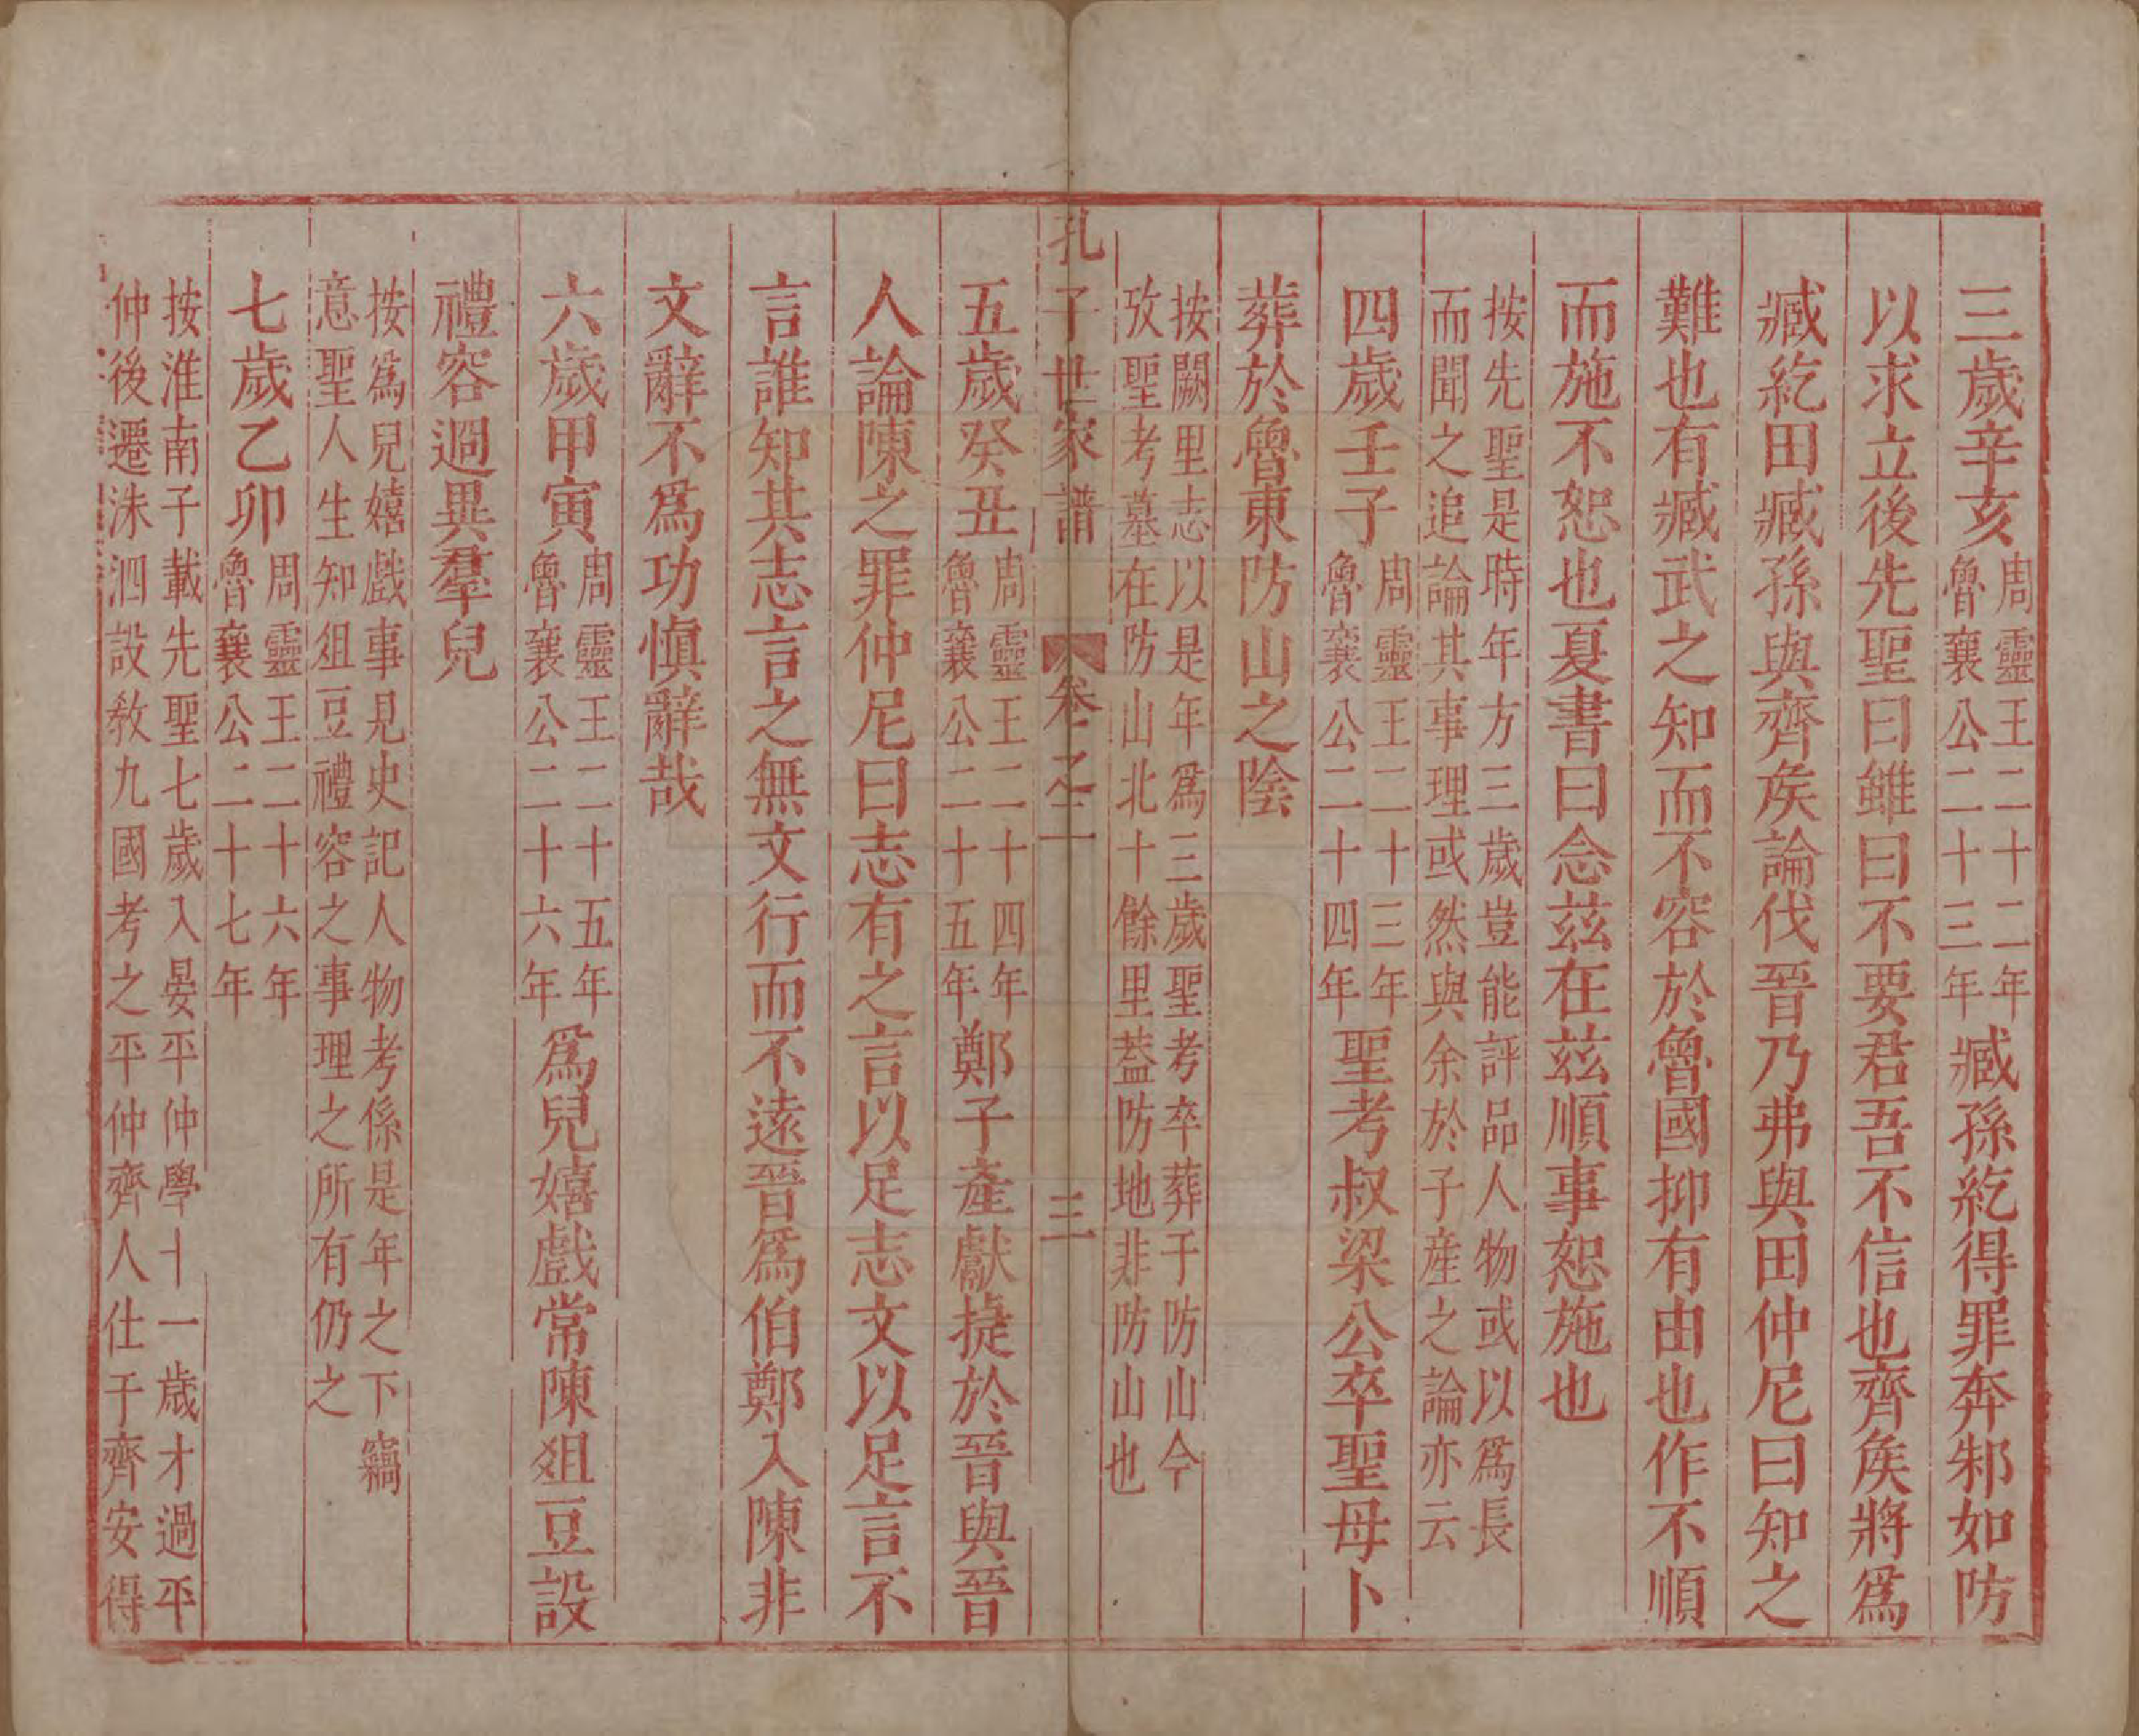 三歲辛亥周靈王二十二年魯襄公二十三年臧孫紇得罪奔邾如防
以求立後先聖曰雖曰不要君吾不信也齊矦將爲
臧紇田臧孫與齊矦論伐晉乃弗與田仲尼曰知之
難也有臧武之知而不容於魯國抑有由也作不順
而施不恕也夏書曰念茲在茲順事恕施也
按先聖是時年方三歲豈能評品人物或以爲長
而聞之追論其事理或然與余於子產之論亦云
四歲壬子周靈王二十三年魯襄公二十四年聖考叔梁公卒聖母卜
葬於魯東防山之陰
按闕里志以是年爲三歲聖考卒葬于防山今
攷聖考墓在防山北十餘里蓋防地非防山也
孔子世家譜 卷之二 三
五歲癸丑周靈王二十四年魯襄公二十五年鄭子產獻捷於晉與晉
人論陳之罪仲尼曰志有之言以足志文以足言不
言誰知其志言之無文行而不遠晉爲伯鄭入陳非
文辭不爲功愼辭哉
六歲甲寅周靈王二十五年魯襄公二十六年爲兒嬉戲常陳爼豆設
禮容迥異羣兒
按爲兒嬉戲事見史記人物考係是年之下竊
意聖人生知爼豆禮容之事理之所有仍之
七歲乙卯周靈王二十六年魯襄公二十七年
按淮南子載先聖七歲入晏平仲學十一歲才過平
仲後遷洙泗設敎九國考之平仲齊人仕于齊安得